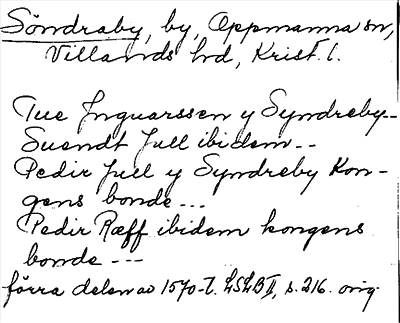 Söndraby, by, Oppmanna sn,
Villands hd, Krist. l.
Tue Jnguarssen y Syndreby--
Suendt Jull ibidem--
Pedir Jull y Syndreby Kon-
gens bonde---
Pedir Ræff ibidem kongens
bonde ---
förra delen av 1570-t. LSLB II, s. 216. orig